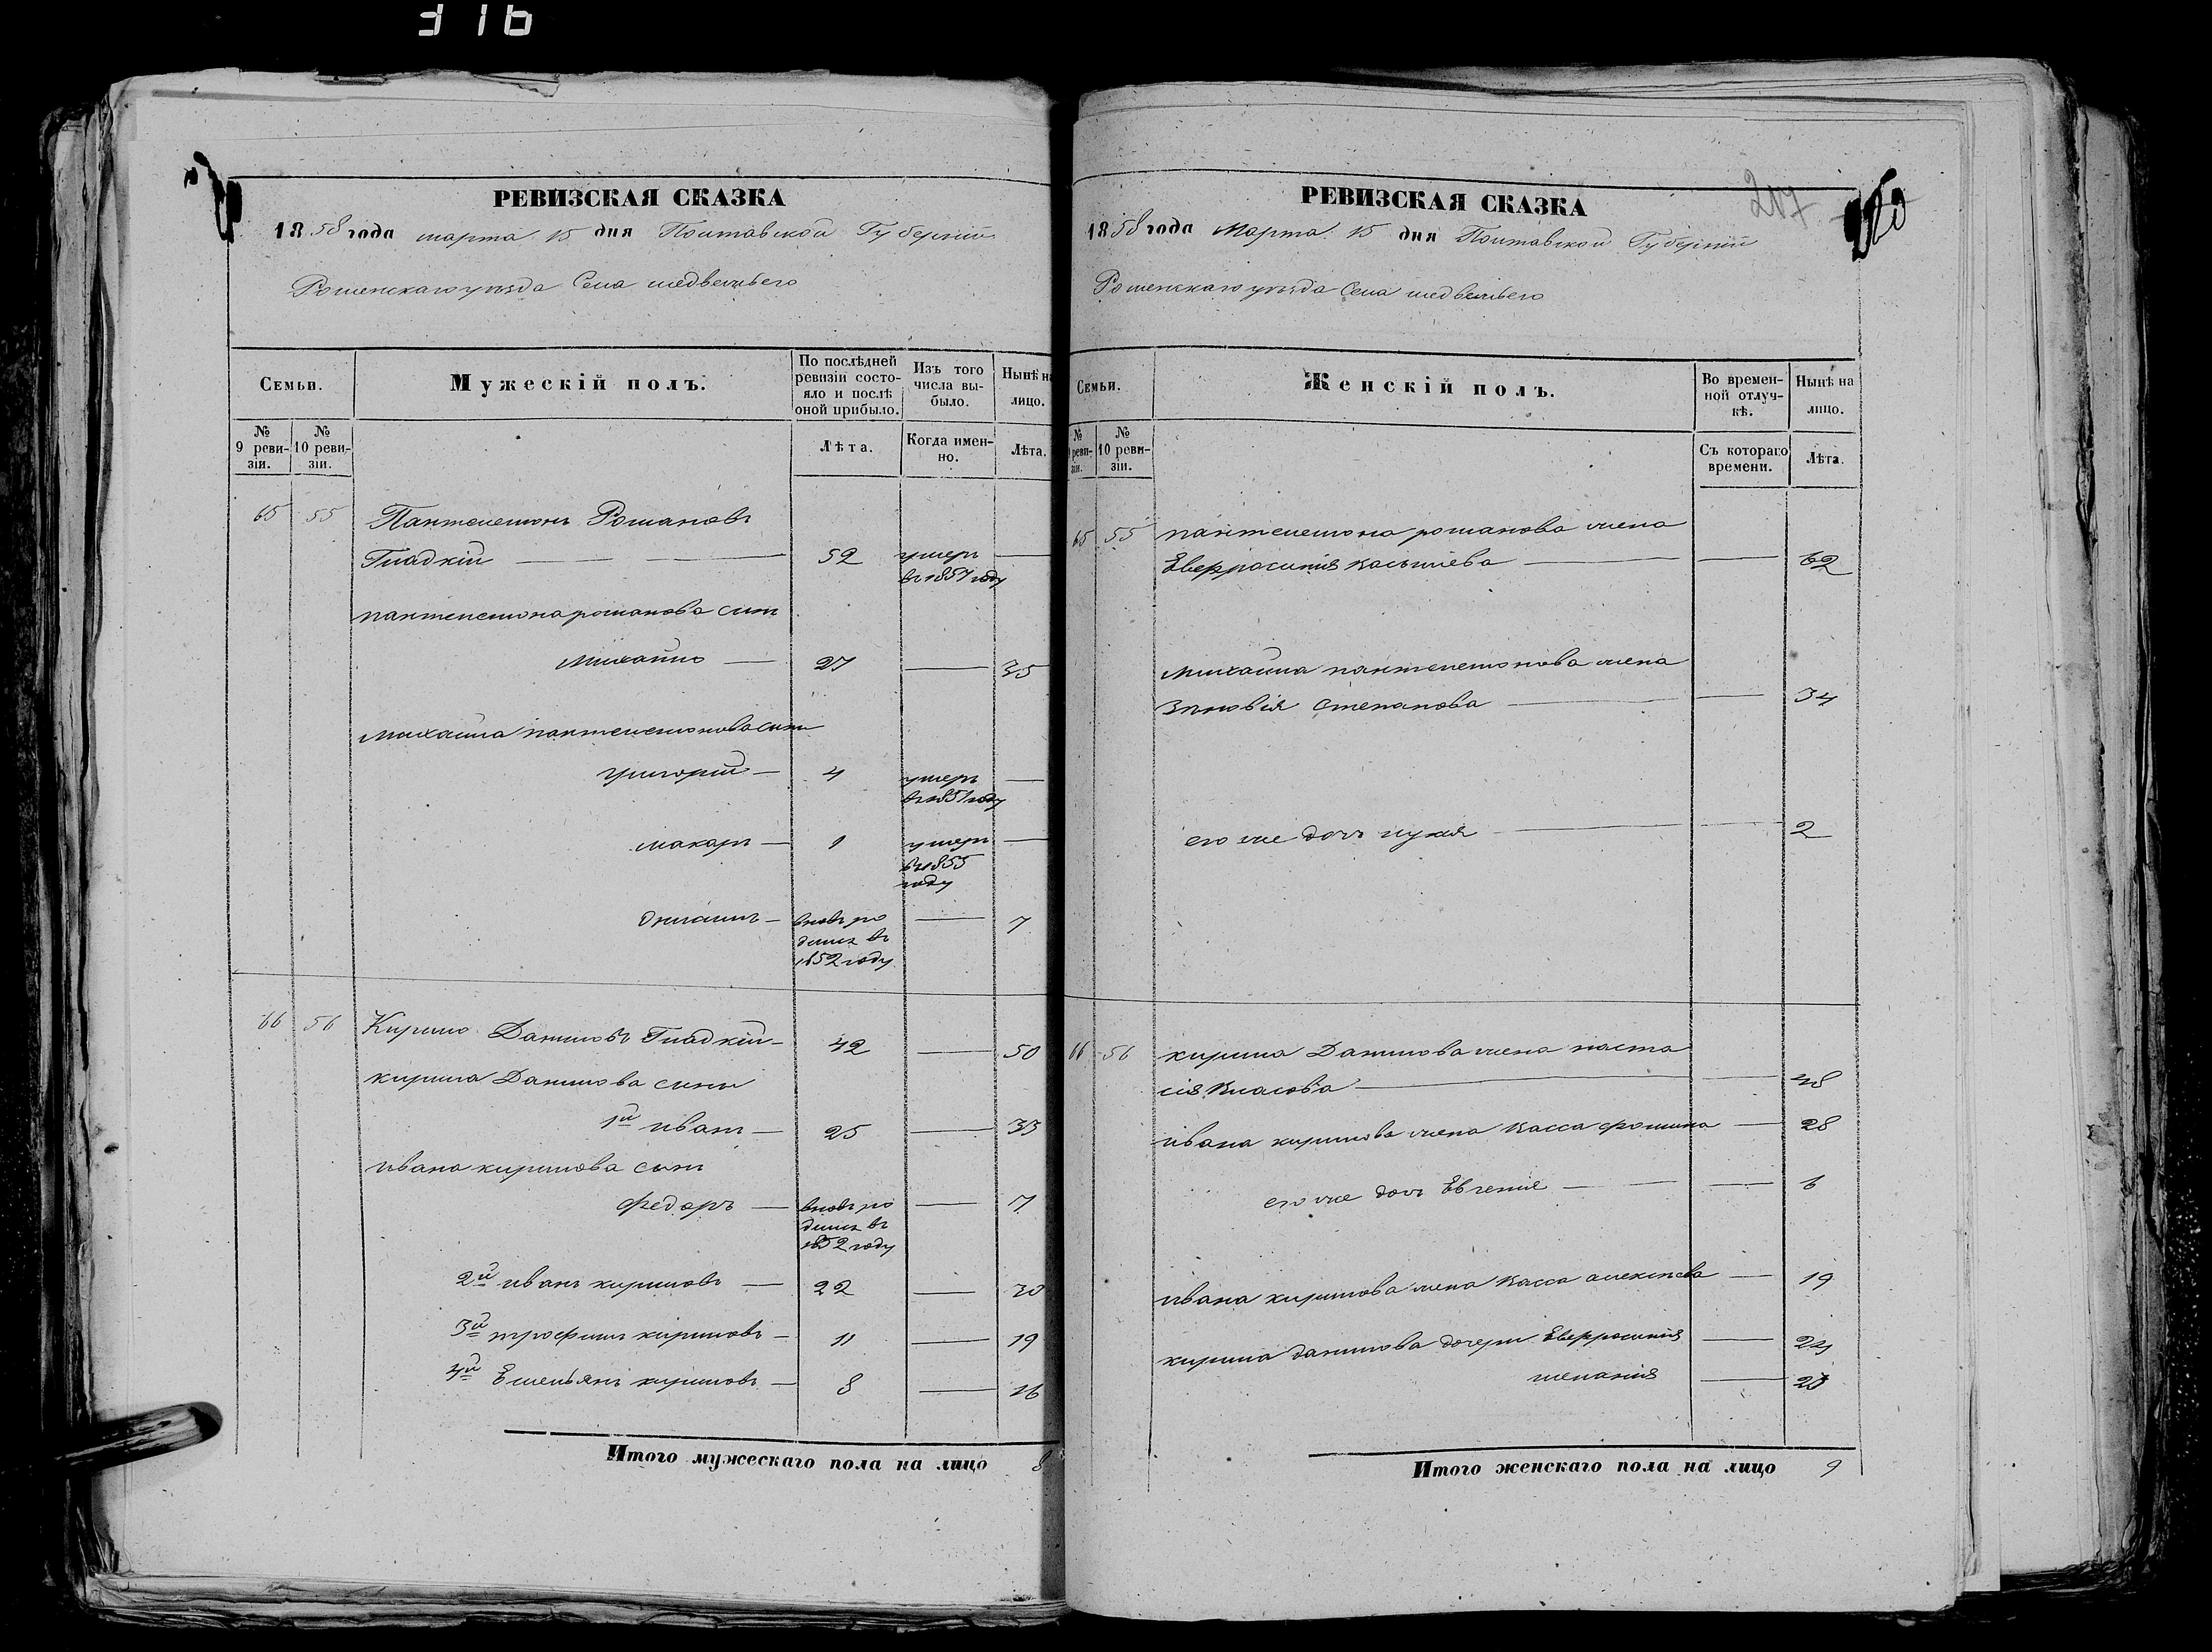 316
РЕВИЗСКАЯ СКАЗКА
1858 года марта 15 дня Полтавской Губерніи
Роменскаго уѣзда Села медвежьего
Семьи.
Мужескій полъ.
По послѣдней ревизіи состояло и послѣ оной прибыло.
Изъ того числа выбыло.
Нынѣ на лицо.
№ 9 ревизіи.
№ 10 ревизіи.
Лѣта.
Когда именно.
Лѣта.
65 55 Пантелемонъ Романовъ
Гладкій — 52 умеръ —
въ 1857 году
пантелемона романова сын
Михайло — 27 — 35
Михайла пантелемонова сын
григорій — 4 умеръ —
въ 1851 году
макаръ — 1 умеръ —
въ 1855
году
вновь ро — 7
дился въ
1852 году
66 56 Кирило Даниловъ Гладкій — 42 — 50
кирила Данилова сыны
1й иван — 25 — 33
ивана кирилова сын
федоръ — вновь ро — 7
дился въ
1852 году
2й иванъ кириловъ — 22 — 30
3й трофимъ кириловъ — 11 — 19
4й Емельянъ кириловъ — 8 — 16
Итого мужескаго пола на лицо 8
РЕВИЗСКАЯ СКАЗКА
207
1858 года Марта 15 дня Полтавской Губерніи
Роменскаго уѣзда Села медвежьего
Семьи.
Женскій полъ.
Во временной отлучкѣ.
Нынѣ на лицо.
№ 9 ревизіи.
№ 10 ревизіи.
Съ котораго времени.
Лѣта.
65 55 пантелемона романова жена
Евфросинія — — 62
Михайла пантелемонова жена
Зиновія Степанова — — 34
его же дочь — — 2
66 56 кирила Данилова жена наста
сія Власова — — 48
ивана кирилова жена Васса фомина — 28
его же дочь Евгенія — — 6
ивана кирилова жена Васса алексѣева — 19
кирила данилова дочери Евфросинія — 24
меланія — 20
Итого женскаго пола на лицо 9